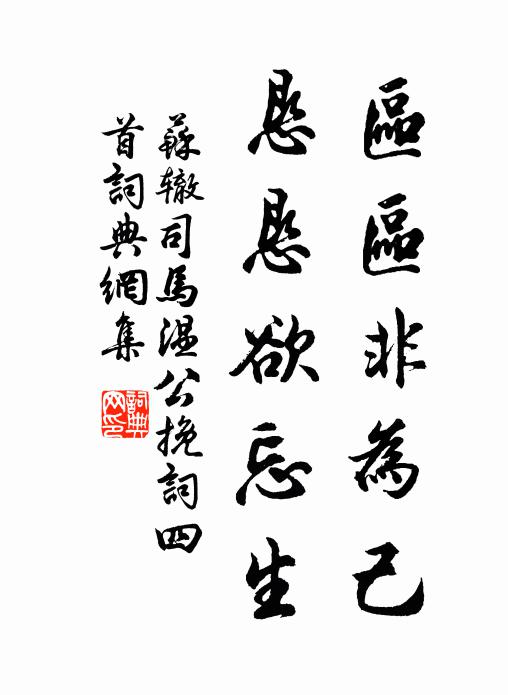 區區非為己
恳恳欲忘生
蘇轍司馬温公挽詞四
首詞典網集
詞典
网印